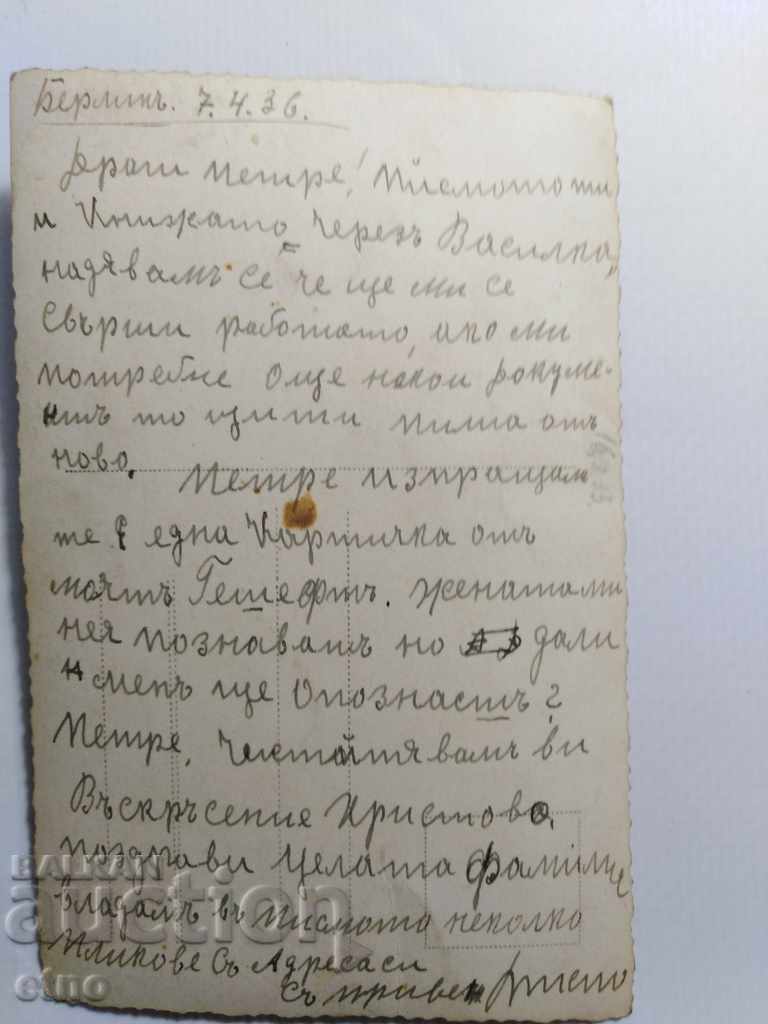 Берлинъ. 7.4.36.
Драги Петре! Писмото ти
и Книжката черезъ Василка,
надявамъ се че ще ми се
свърши работата, ако ми
потребне още някои докуме-
нтъ то щити пиша отъ
ново. Петре изпращам
те една Картичка отъ
моятъ Гешефтъ. жената ми
нея познаватъ но дали
и менъ ще опознаетъ?
Петре, Честитявамъ ви
Въскръсение Христово,
поздрави Целата фамилие
Владамъ въ писмото неколко
Пликове съ Адреса си
Съ привет Ристо
BALKAN
auction
etno